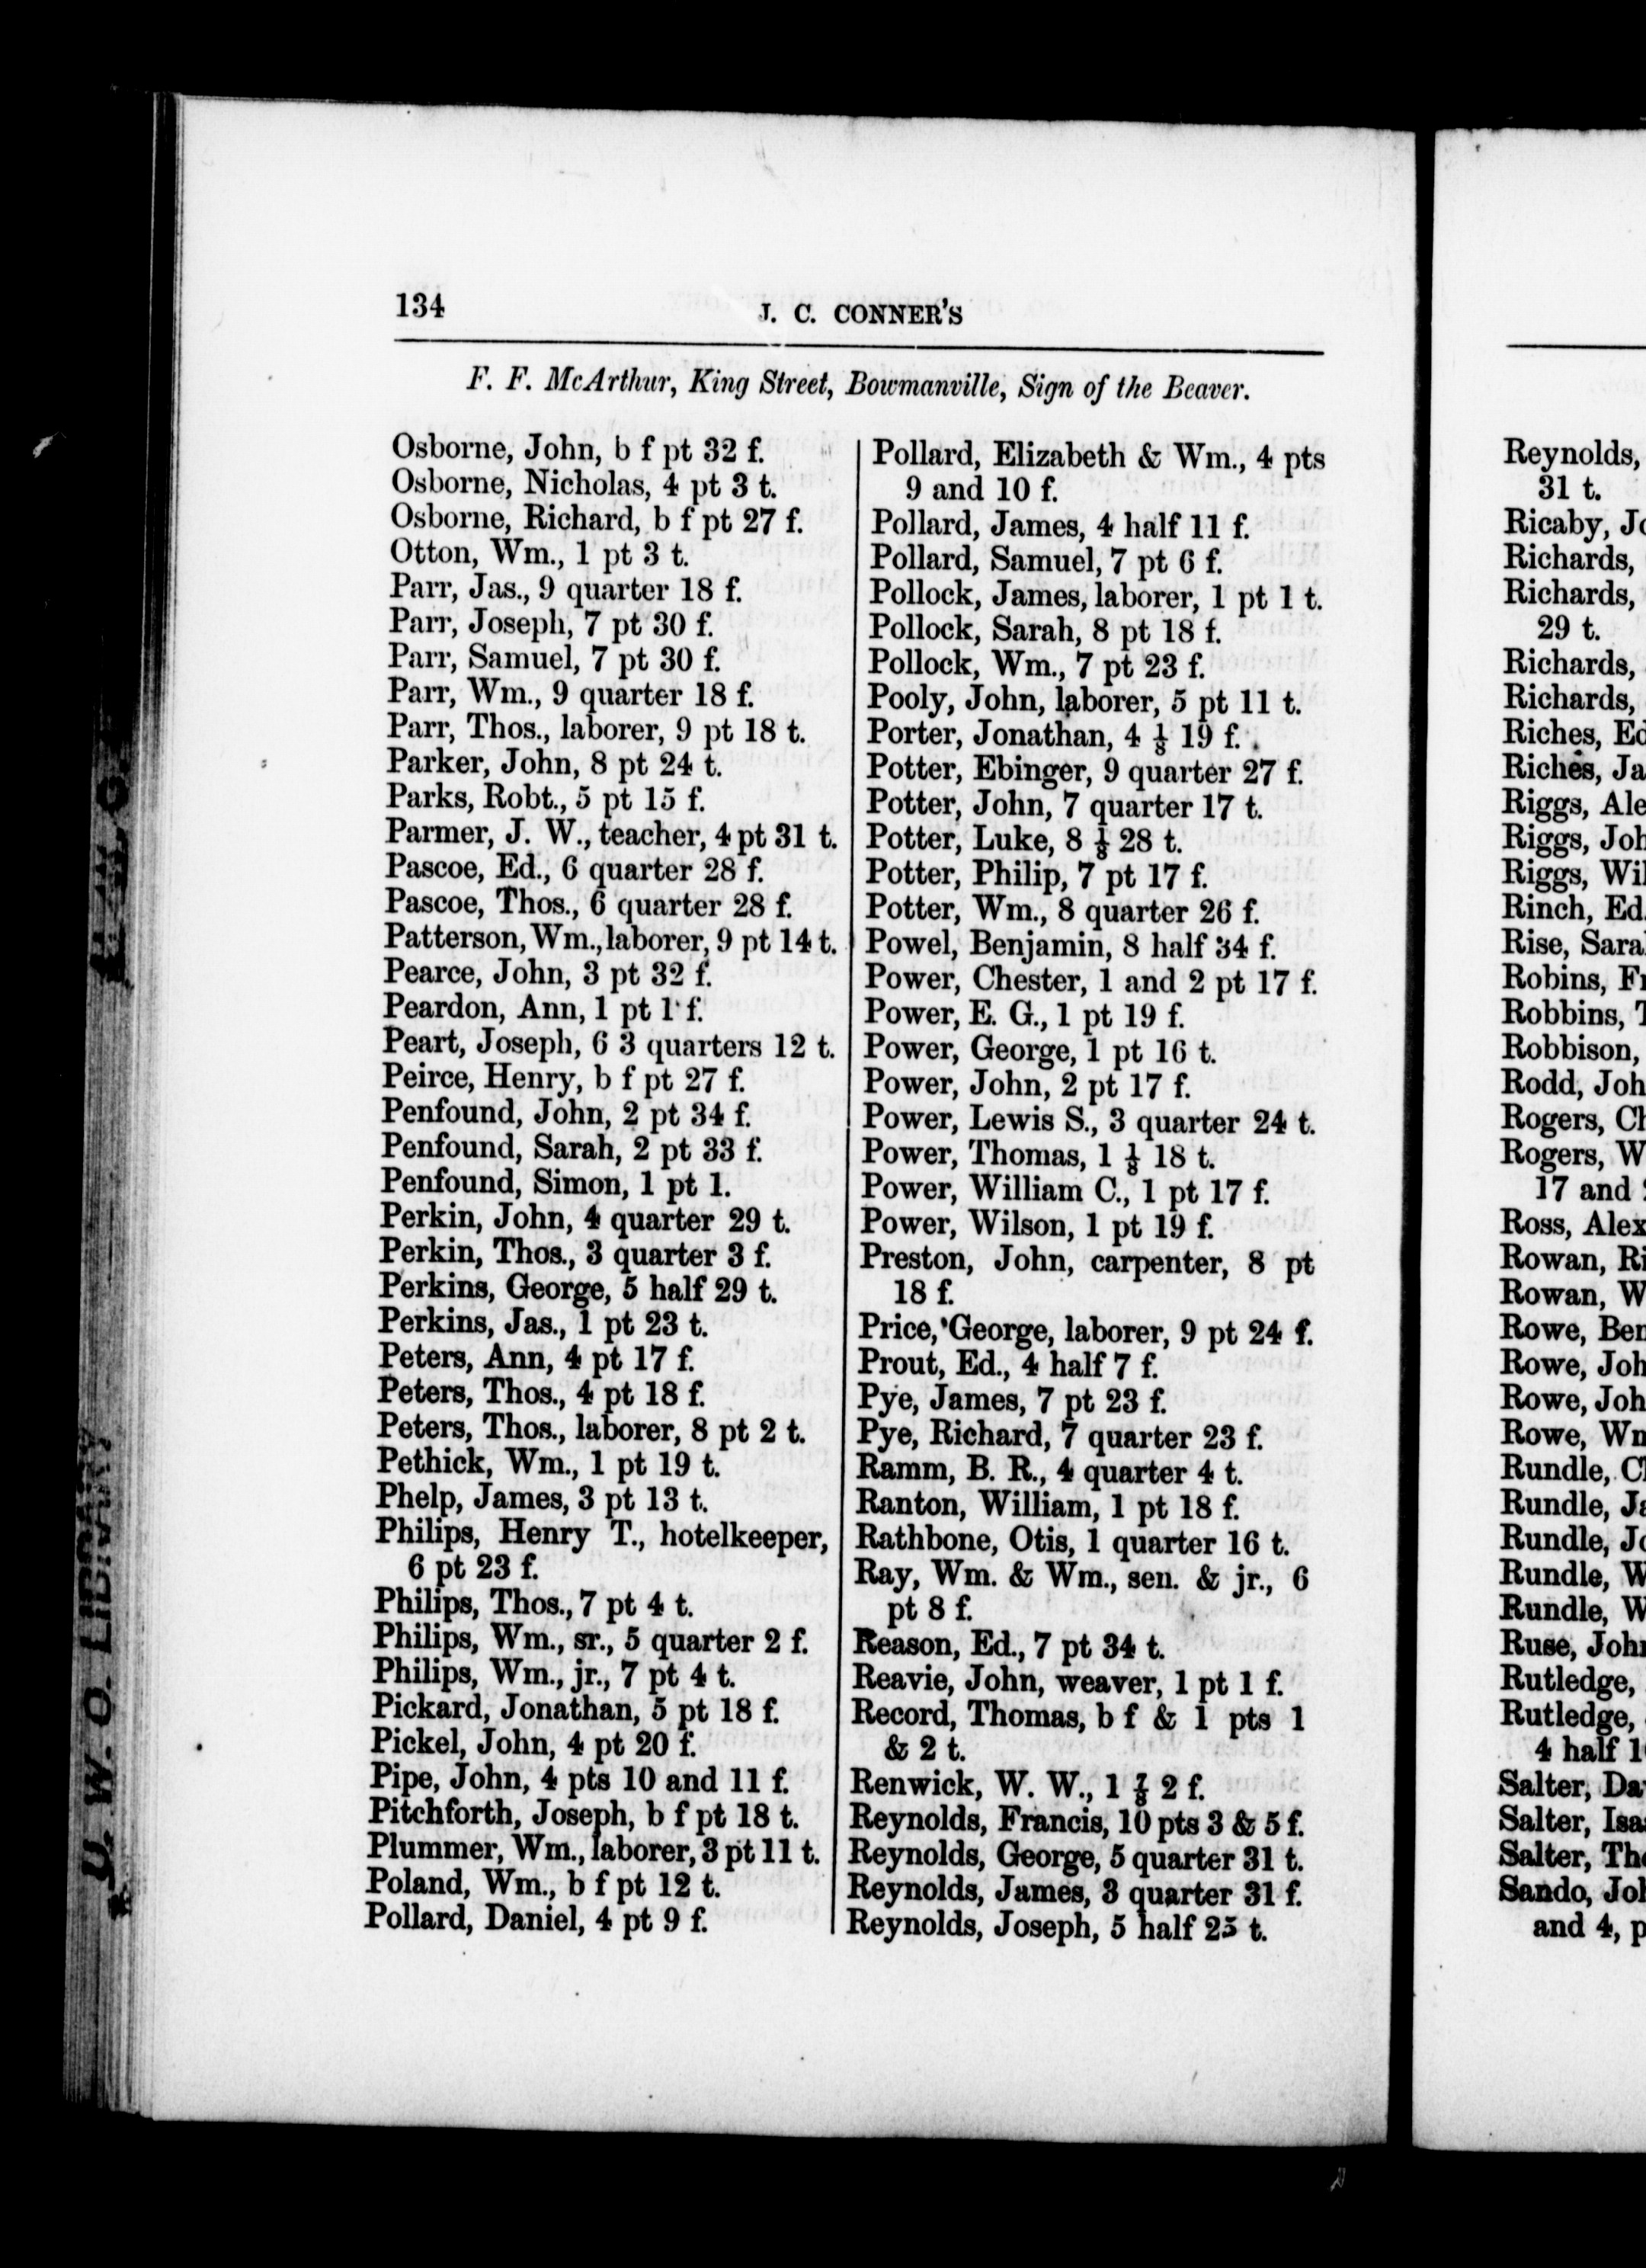 134
J. C. CONNER'S
F. F. McArthur, King Street, Bowmanville, Sign of the Beaver.
Osborne, John, b f pt 32 f.
Osborne, Nicholas, 4 pt 3 t.
Osborne, Richard, b f pt 27 f.
Otton, Wm., 1 pt 3 t.
Parr, Jas., 9 quarter 18 f.
Parr, Joseph, 7 pt 30 f.
Parr, Samuel, 7 pt 30 f.
Parr, Wm., 9 quarter 18 f.
Parr, Thos., laborer, 9 pt 18 t.
Parker, John, 8 pt 24 t.
Parks, Robt., 5 pt 15 f.
Parmer, J. W., teacher, 4 pt 31 t.
Pascoe, Ed., 6 quarter 28 f.
Pascoe, Thos., 6 quarter 28 f.
Patterson, Wm., laborer, 9 pt 14 t.
Pearce, John, 3 pt 32 f.
Peardon, Ann, 1 pt 1 f.
Peart, Joseph, 6 3 quarters 12 t.
Peirce, Henry, b f pt 27 f.
Penfound, John, 2 pt 34 f.
Penfound, Sarah, 2 pt 33 f.
Penfound, Simon, 1 pt 1.
Perkin, John, 4 quarter 29 t.
Perkin, Thos., 3 quarter 3 f.
Perkins, George, 5 half 29 t.
Perkins, Jas., 1 pt 23 t.
Peters, Ann, 4 pt 17 f.
Peters, Thos., 4 pt 18 f.
Peters, Thos., laborer, 8 pt 2 t.
Pethick, Wm., 1 pt 19 t.
Phelp, James, 3 pt 13 t.
Philips, Henry T., hotelkeeper,
6 pt 23 f.
Philips, Thos., 7 pt 4 t.
Philips, Wm., sr., 5 quarter 2 f.
Philips, Wm., jr., 7 pt 4 t.
Pickard, Jonathan, 5 pt 18 f.
Pickel, John, 4 pt 20 f.
Pipe, John, 4 pts 10 and 11 f.
Pitchforth, Joseph, b f pt 18 t.
Plummer, Wm., laborer, 3 pt 11 t.
Poland, Wm., b f pt 12 t.
Pollard, Daniel, 4 pt 9 f.
Pollard, Elizabeth & Wm., 4 pts
9 and 10 f.
Pollard, James, 4 half 11 f.
Pollard, Samuel, 7 pt 6 f.
Pollock, James, laborer, 1 pt 1 t.
Pollock, Sarah, 8 pt 18 f.
Pollock, Wm., 7 pt 23 f.
Pooly, John, laborer, 5 pt 11 t.
Porter, Jonathan, 4 ⅛ 19 f.
Potter, Ebinger, 9 quarter 27 f.
Potter, John, 7 quarter 17 t.
Potter, Luke, 8 ⅛ 28 t.
Potter, Philip, 7 pt 17 f.
Potter, Wm., 8 quarter 26 f.
Powel, Benjamin, 8 half 34 f.
Power, Chester, 1 and 2 pt 17 f.
Power, E. G., 1 pt 19 f.
Power, George, 1 pt 16 t.
Power, John, 2 pt 17 f.
Power, Lewis S., 3 quarter 24 t.
Power, Thomas, 1 ⅛ 18 t.
Power, William C., 1 pt 17 f.
Power, Wilson, 1 pt 19 f.
Preston, John, carpenter, 8 pt
18 f.
Price, George, laborer, 9 pt 24 f.
Prout, Ed., 4 half 7 f.
Pye, James, 7 pt 23 f.
Pye, Richard, 7 quarter 23 f.
Ramm, B. R., 4 quarter 4 t.
Ranton, William, 1 pt 18 f.
Rathbone, Otis, 1 quarter 16 t.
Ray, Wm. & Wm., sen. & jr., 6
pt 8 f.
Reason, Ed., 7 pt 34 t.
Reavie, John, weaver, 1 pt 1 f.
Record, Thomas, b f & 1 pts 1
& 2 t.
Renwick, W. W., 1 ⅞ 2 f.
Reynolds, Francis, 10 pts 3 & 5 f.
Reynolds, George, 5 quarter 31 t.
Reynolds, James, 3 quarter 31 f.
Reynolds, Joseph, 5 half 25 t.
Reynolds,
31 t.
Ricaby,
Richards,
Richards,
29 t.
Richards,
Richards,
Riches,
Riches,
Riggs,
Riggs,
Riggs,
Rinch, Ed.
Rise,
Robins,
Robbins,
Robbison,
Rodd,
Rogers,
Rogers,
17 and
Ross,
Rowan,
Rowan,
Rowe,
Rowe,
Rowe,
Rowe,
Rundle,
Rundle,
Rundle,
Rundle,
Rundle,
Ruse,
Rutledge,
Rutledge,
4 half
Salter,
Salter,
Salter,
Sando,
and 4,
U. W. O. LIBRARY